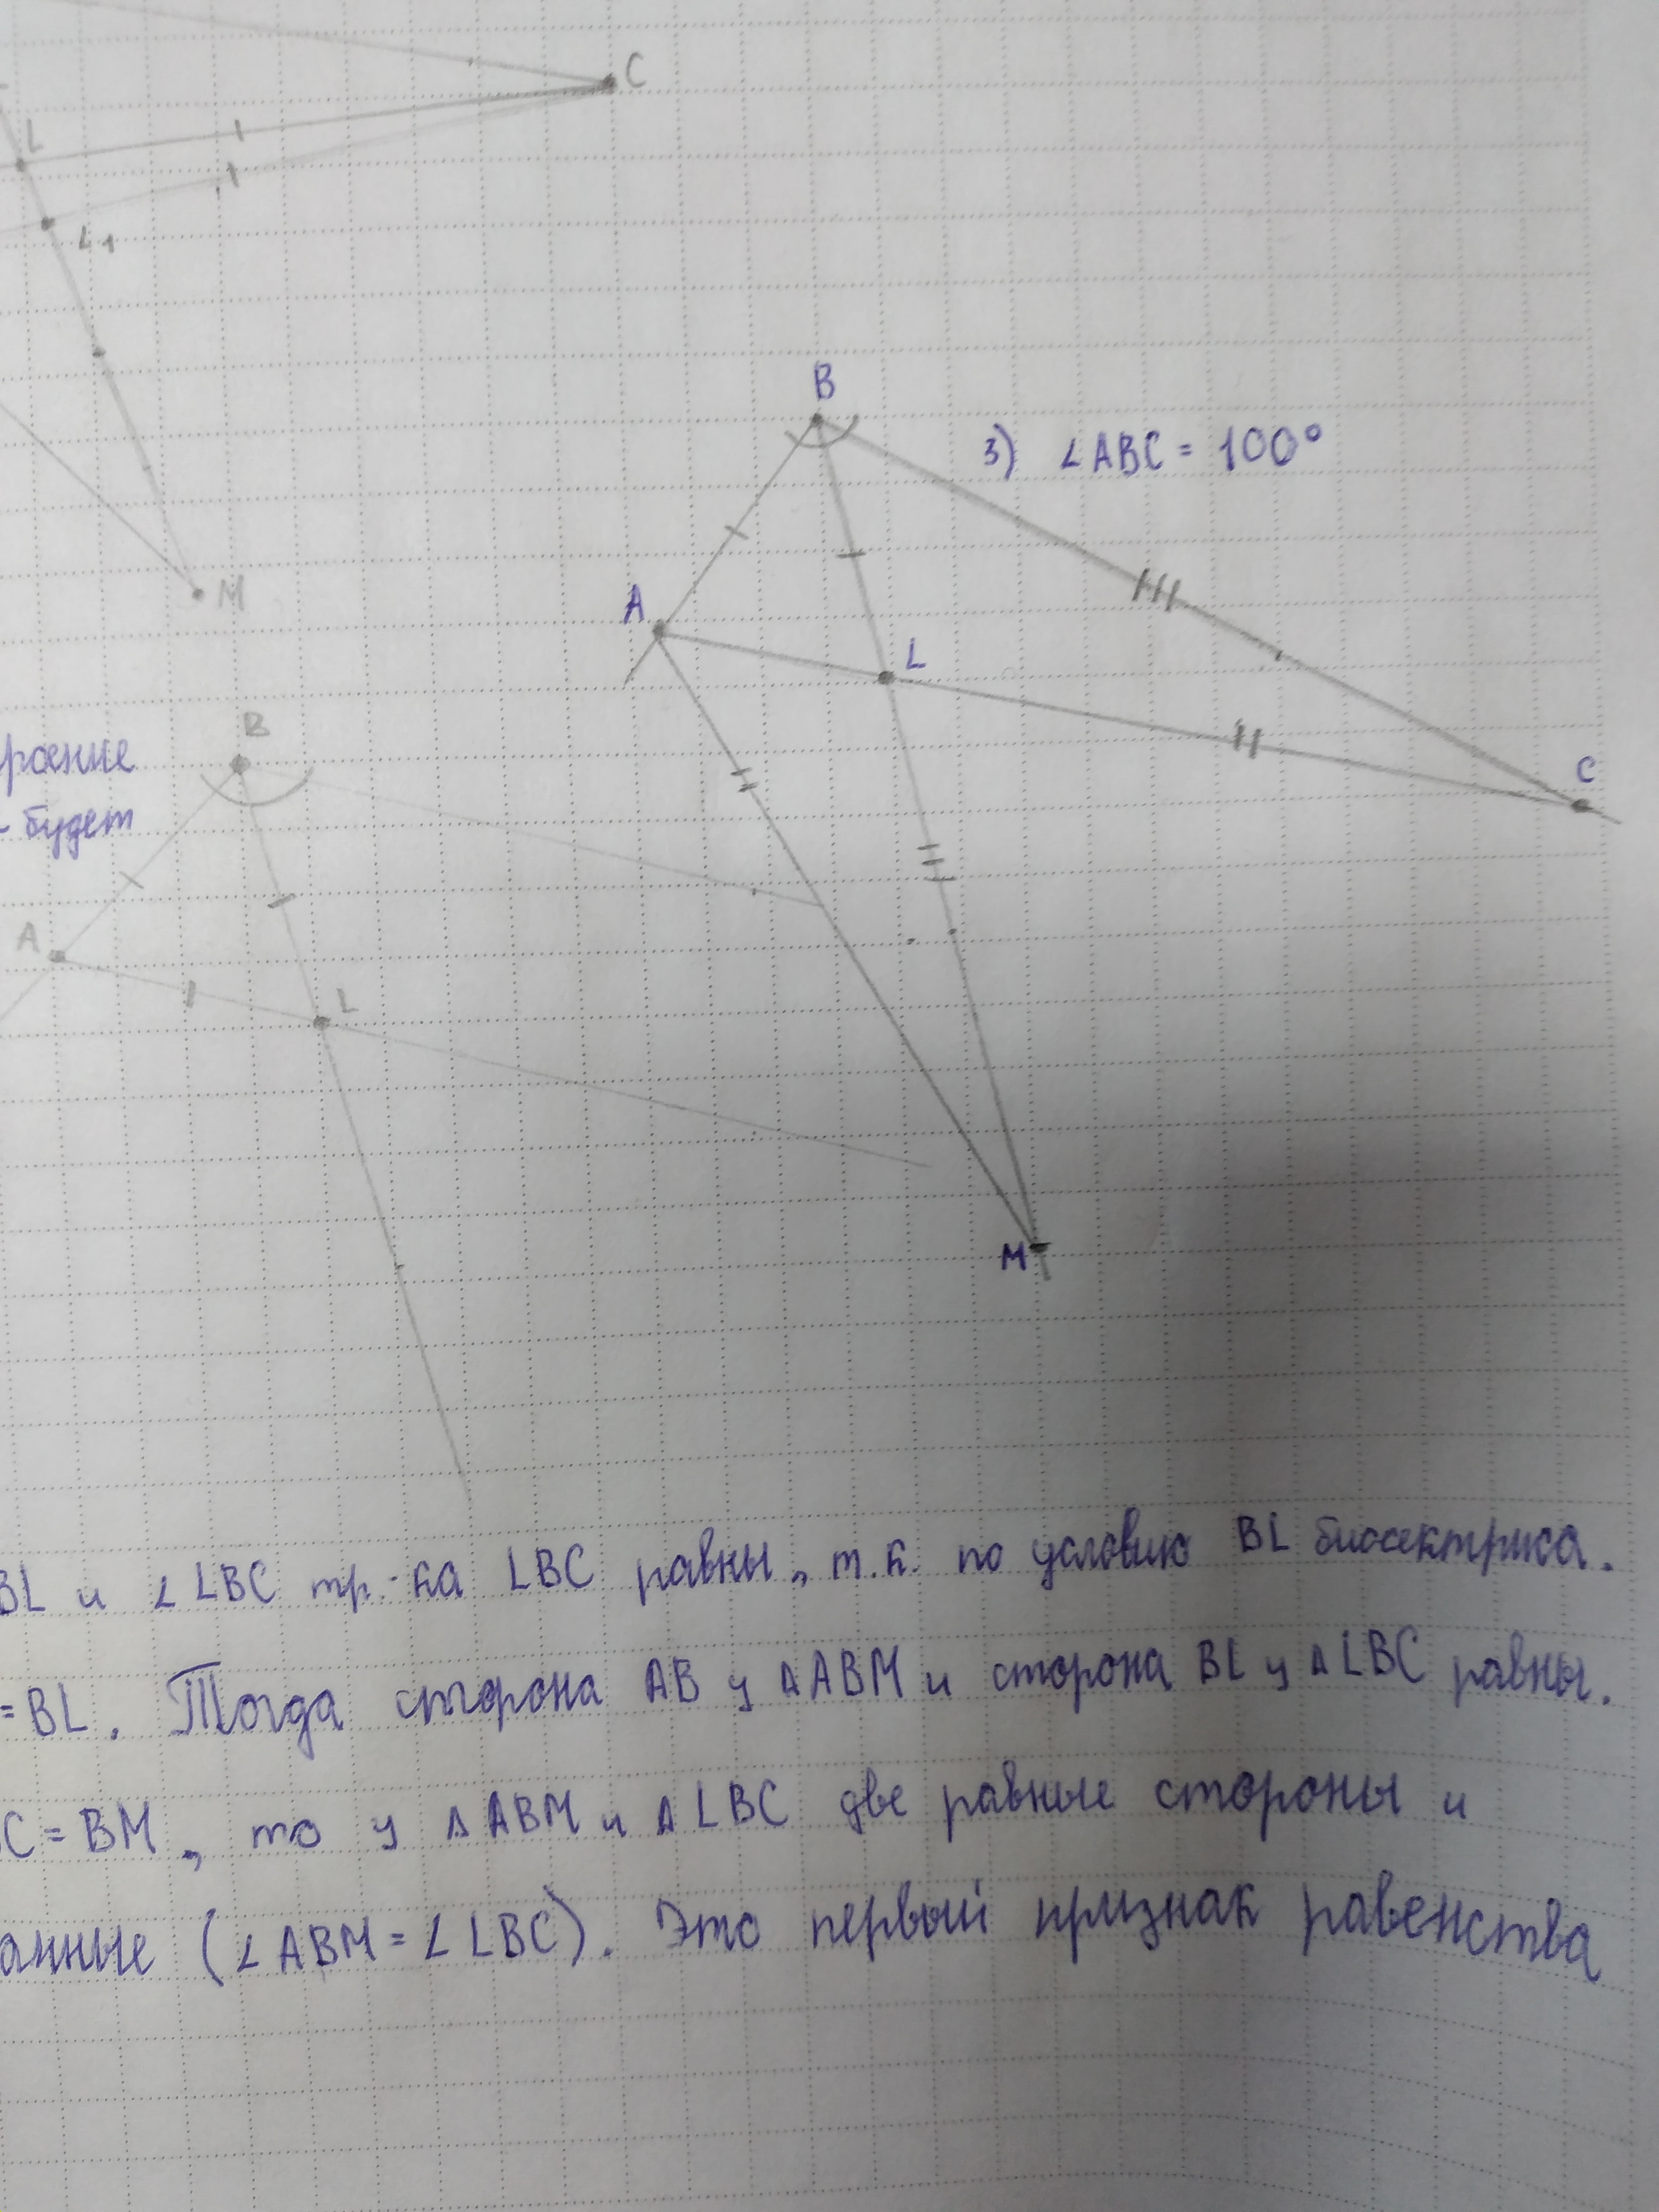 C
L
L1
M
B
3) ∠ABC = 100°
A
L
C
M
B
роение
будет
A
L
BL и ∠LBC тр.-ка LBC равны, т.к. по условию BL биссектриса.
= BL. Тогда сторона AB у ΔABM и сторона BL у ΔLBC равны.
C = BM, то у ΔABM и ΔLBC две равные стороны и
анные (∠ABM = ∠LBC). Это первый признак равенства